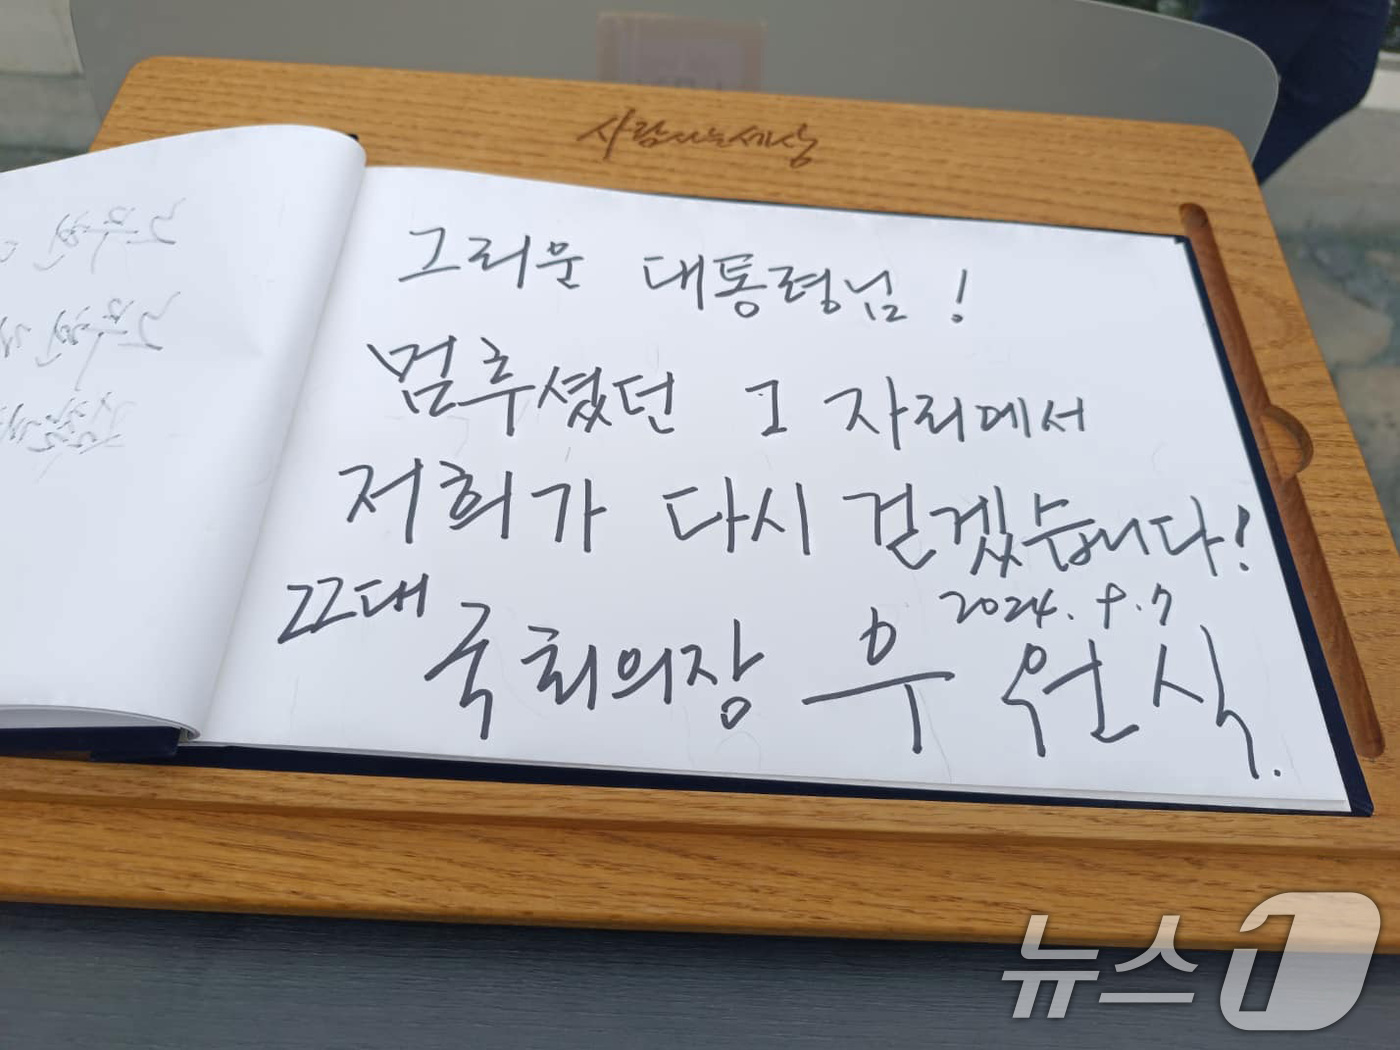 사람사는세상
그리운 대통령님!
멈추셨던 그 자리에서
저희가 다시 걷겠습니다!
2024. 9. 7
22대 국회의장 우 원 식.
뉴스1